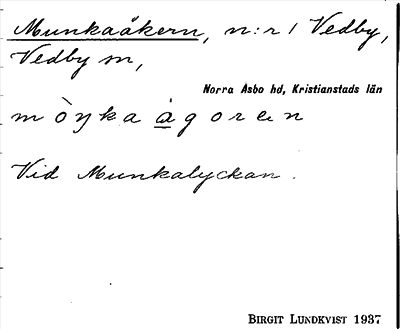 Munkaåkern, n:r 1 Vedby,
Vedby sn,
Norra Åsbo hd, Kristianstads län
Vid Munkalyckan.
BIRGIT LUNDKVIST 1937